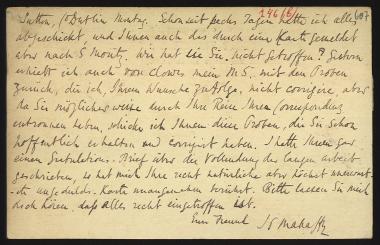 Sutton, Co Dublin Montag. Schon seit sechs Tagen hatte ich alles
abgeschickt, und Ihnen auch dies durch eine Karte gemeldet
aber nach S. Moritz, wie hat sie Sie nicht getroffen? Gestern
erhielt ich auch von Clowes mein M S. mit den Proben
zurück, die ich, Ihrem Wunsche zufolge, nicht corrigire, aber
da Sie möglicherweise durch Ihre Reise Ihren Correspondenz
entronnen haben, schicke ich Ihnen diese Proben, die Sie schon
hoffentlich erhalten und corrigirt haben. Ich hatte Ihnen gar
einen Gratulations-Brief über die Vollendung der langen Arbeit
geschrieben, es hat mich Ihre recht natürliche aber höchst unerwart-
ete ungedulds-Karte unangenehm berührt. Bitte lassen Sie mich
doch hören, dass alles recht eingetroffen ist.
Euer Freund J P Mahaffy
146/6/